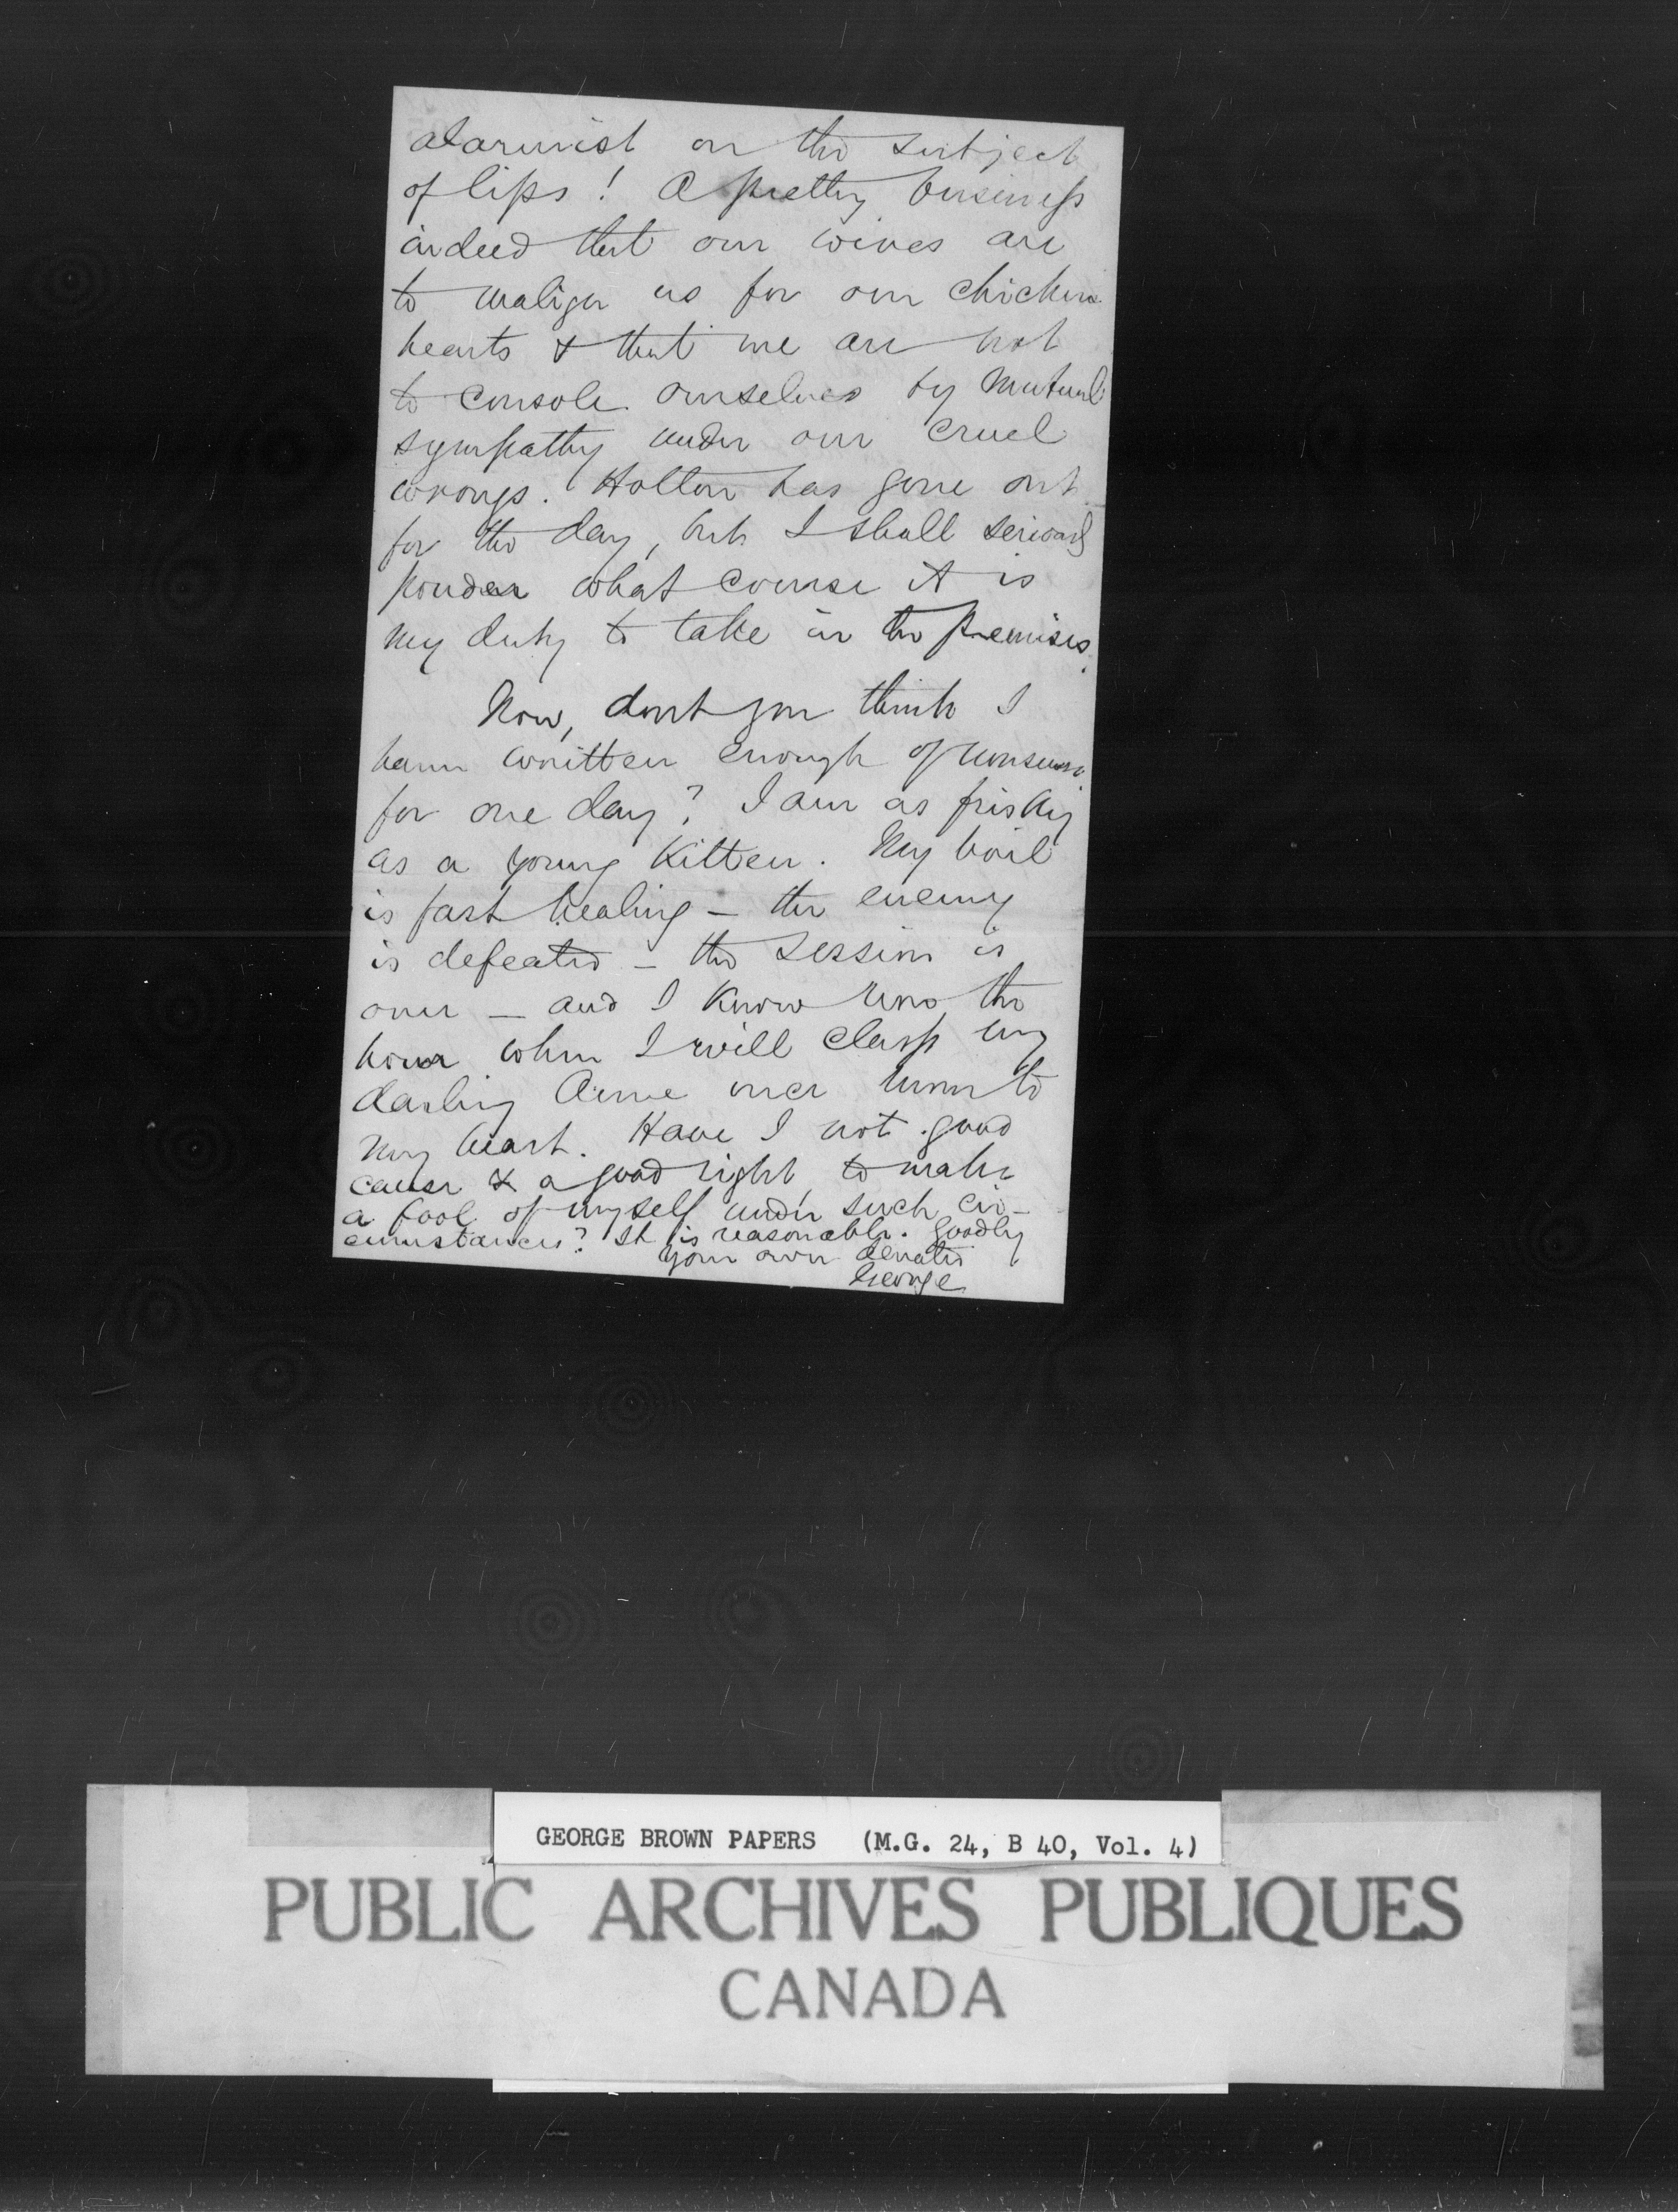 alarmist on the subject
of lips! A pretty business
indeed that our wives are
to malign us for our chicken
hearts & that we are not
to console ourselves by mutual
sympathy under our cruel
wrongs. Holton has gone out
for the day, but I shall seriously
ponder what course it is
my duty to take in the premises.
Now, dont you think I
have written enough of nonsense
for one day? I am as frisky
as a young kitten. My boil
is fast healing – the enemy
is defeated – the session is
over – and I know now the
hour when I will clasp my
darling Anne once more to
my heart. Have I not good
cause & a good right to make
a fool of myself under such cir-
cumstances? It is reasonable. Goodby
your own devoted
George
GEORGE BROWN PAPERS (M.G. 24, B 40, Vol. 4)
PUBLIC ARCHIVES PUBLIQUES
CANADA